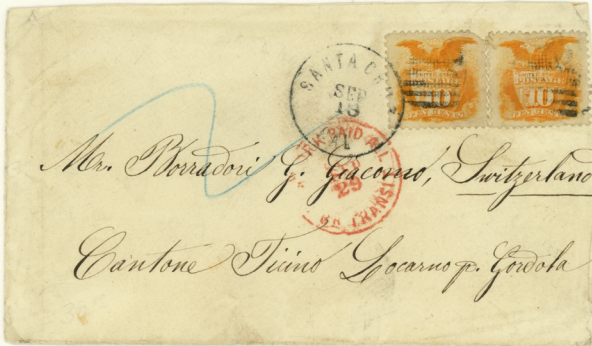 SANTA CRUZ
SEP
18
10 10
TEN CENTS TEN CENTS
PAID ALL
29
BR. TRANSIT
Mr. Borradori G. Giacomo, Switzerland
Cantone Ticino Locarno p. Gordola